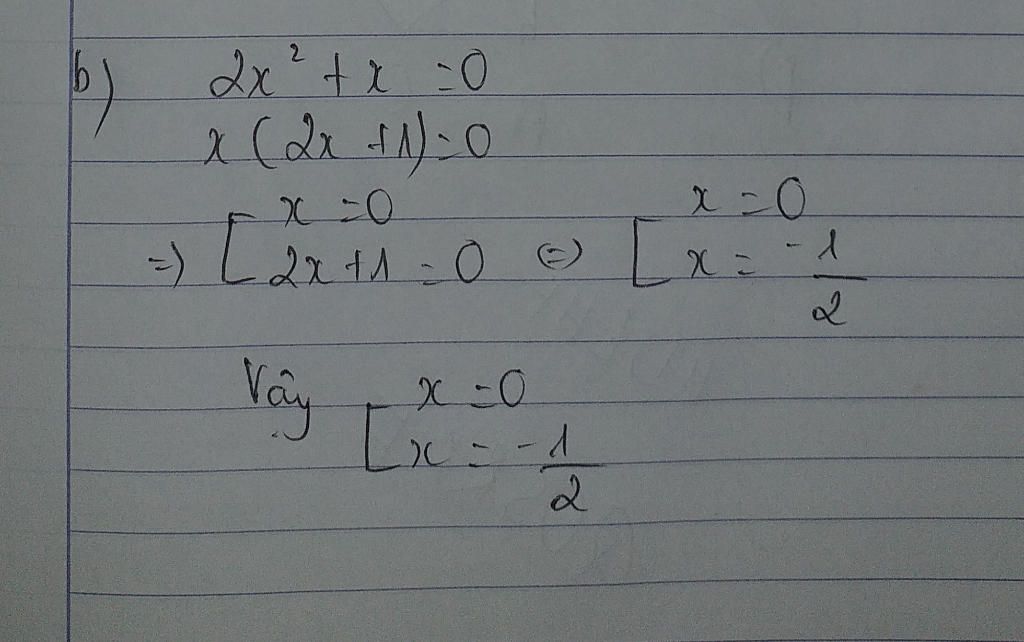 b) 2x² + x = 0
x(2x+1) = 0
=> [ x = 0 <=> [ x = 0
2x+1 = 0 x = -1/2
Vậy [ x = 0
x = -1/2